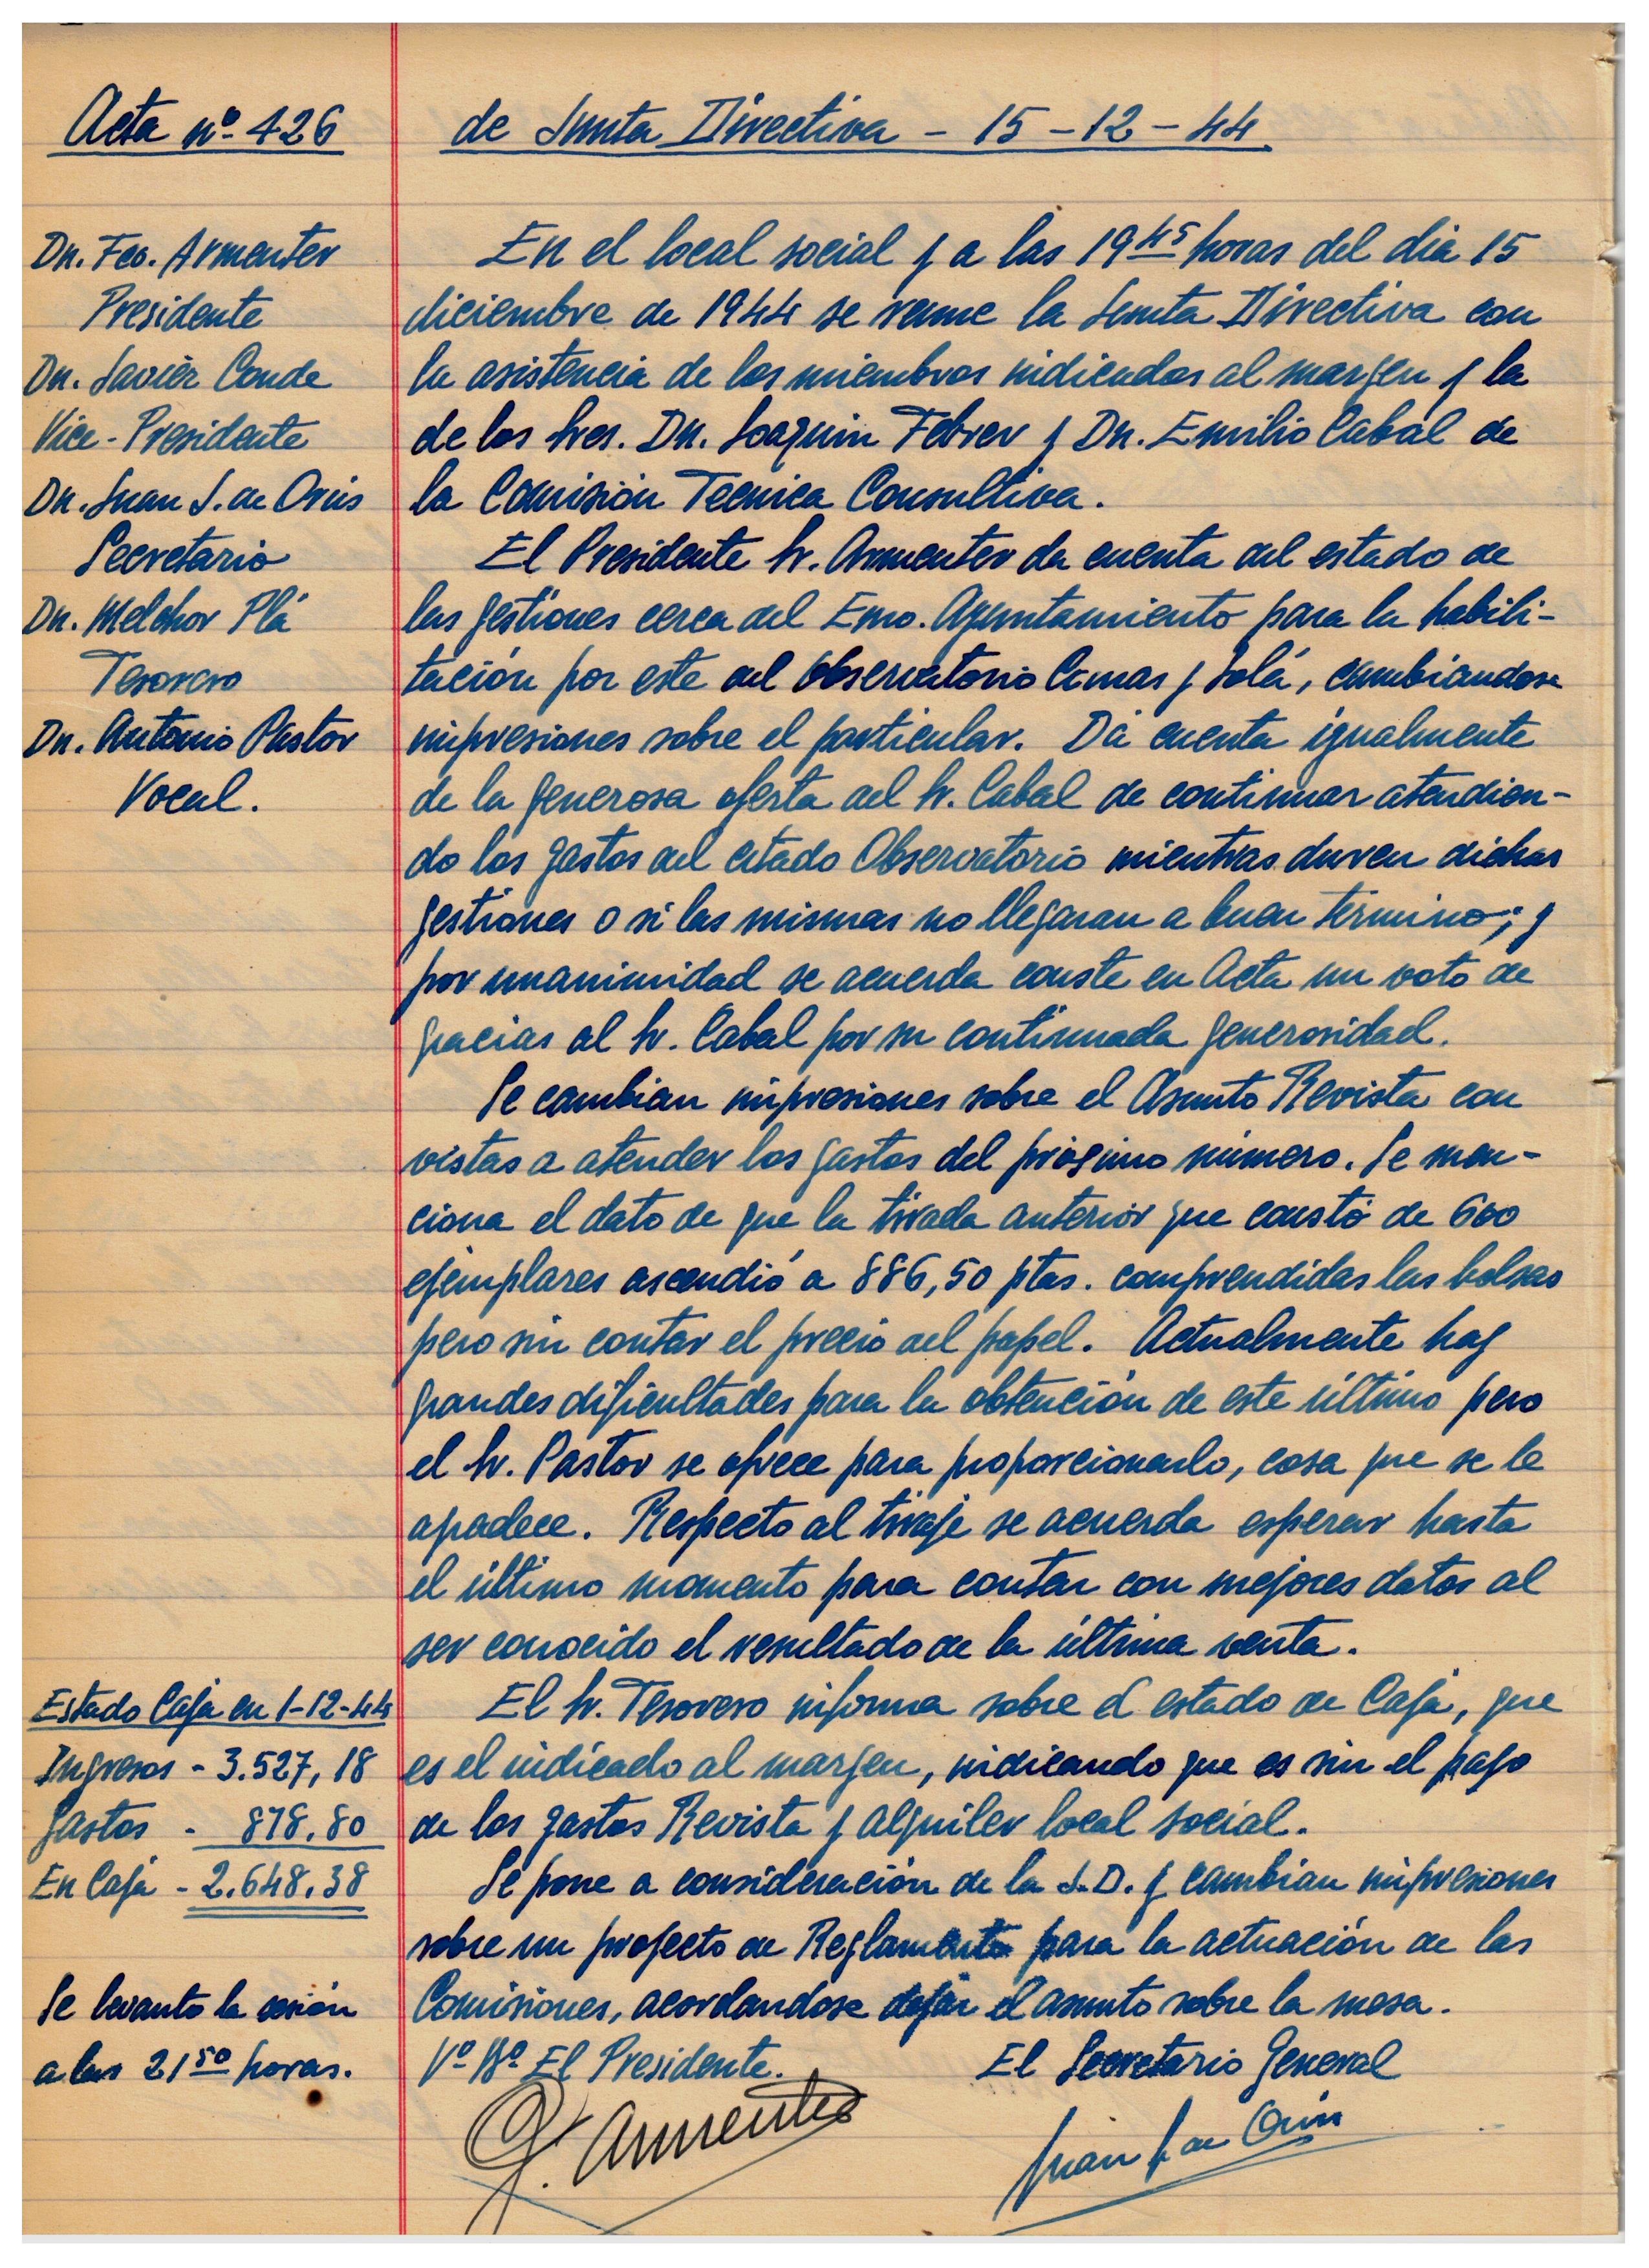 Acta nº 426 de Junta Directiva - 15-12-44
Dn. Fco. Armenter
Presidente
Dn. Javier Conde
Vice-Presidente
Dn. Juan J. de Orús
Secretario
Dn. Melchor Plá
Tesorero
Dn. Antonio Pastor
Vocal.
En el local social y a las 19 45 horas del dia 15
diciembre de 1944 se reune la Junta Directiva con
la asistencia de los miembros indicados al margen y la
de los Sres. Dn. Joaquin Febrer y Dn. Emilio Cabal de
la Comisión Tecnica Consultiva.
El Presidente Sr. Armenter da cuenta del estado de
las gestiones cerca del Emo. Ayuntamiento para la habili-
tación por este del Observatorio Comas y Solá, cambiandose
impresiones sobre el particular. Dá cuenta igualmente
de la generosa oferta del Sr. Cabal de continuar atendien-
do los gastos del citado Observatorio mientras duren dichas
gestiones o si las mismas no llegaran a buen término; y
por unanimidad se acuerda conste en Acta un voto de
gracias al Sr. Cabal por su continuada generosidad.
Se cambian impresiones sobre el Asunto Revista con
vistas a atender los gastos del próximo número. Se men-
ciona el dato de que la tirada anterior que constó de 600
ejemplares ascendió a 886,50 ptas. comprendidas las bolsas
pero sin contar el precio del papel. Actualmente hay
grandes dificultades para la obtención de este último pero
el Sr. Pastor se ofrece para proporcionarlo, cosa que se le
agradece. Respecto al tiraje se acuerda esperar hasta
el último momento para contar con mejores datos al
ser conocido el resultado de la última venta.
Estado Caja en 1-12-44
Ingresos - 3.527,18
Gastos - 878.80
En Caja - 2.648.38
El Sr. Tesorero informa sobre el estado de Caja, que
es el indicado al margen, indicando que es sin el pago
de los gastos Revista y alquiler local social.
Se pone a consideración de la J.D. y cambian impresiones
sobre un proyecto de Reglamento para la actuación de las
Comisiones, acordandose dejar el asunto sobre la mesa.
Se levanto la sesión
a las 21 50 horas.
Vº Bº El Presidente. El Secretario General
F. Armenter
Juan J. de Orús